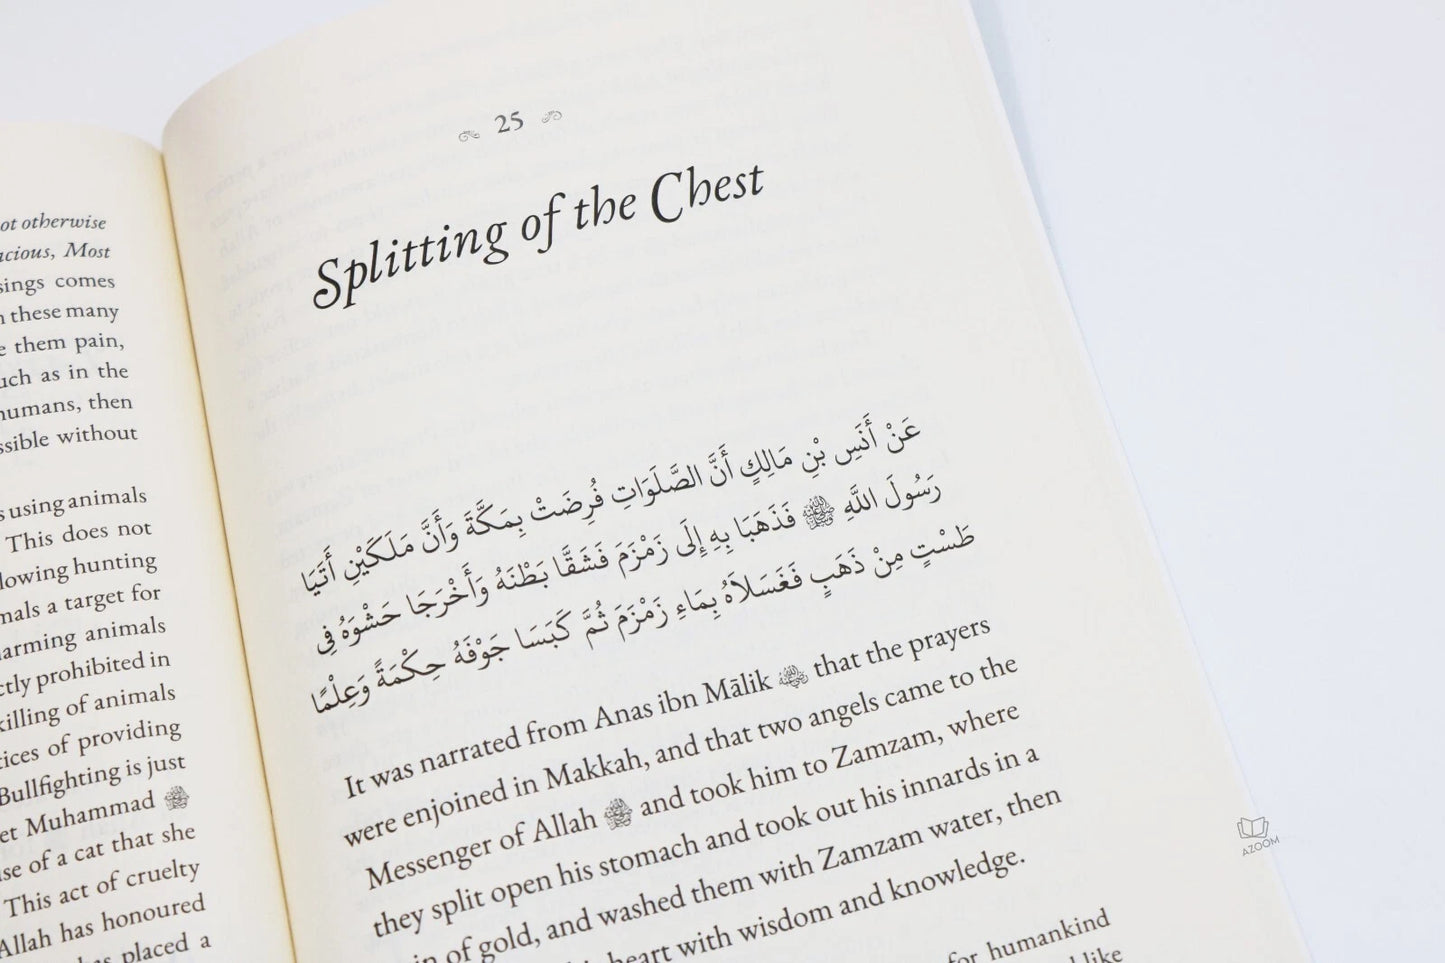 ot otherwise
acious, Most
sings comes
n these many
e them pain,
uch as in the
humans, then
ssible without
s using animals
This does not
lowing hunting
mals a target for
arming animals
ctly prohibited in
killing of animals
tices of providing
Bullfighting is just
et Muhammad ﷺ
se of a cat that she
This act of cruelty
Allah has honoured
has placed a
25
Splitting of the Chest
عَنْ أَنَسِ بْنِ مَالِكٍ أَنَّ الصَّلَوَاتِ فُرِضَتْ بِمَكَّةَ وَأَنَّ مَلَكَيْنِ أَتَيَا
رَسُولَ اللَّهِ ﷺ فَذَهَبَا بِهِ إِلَى زَمْزَمَ فَشَقَّا بَطْنَهُ وَأَخْرَجَا حَشْوَهُ فِي
طَسْتٍ مِنْ ذَهَبٍ فَغَسَلاَهُ بِمَاءِ زَمْزَمَ ثُمَّ كَبَسَا جَوْفَهُ حِكْمَةً وَعِلْمًا
It was narrated from Anas ibn Mālik that the prayers
were enjoined in Makkah, and that two angels came to the
Messenger of Allah ﷺ and took him to Zamzam, where
they split open his stomach and took out his innards in a
of gold, and washed them with Zamzam water, then
heart with wisdom and knowledge.
for humankind
like
AZOOM